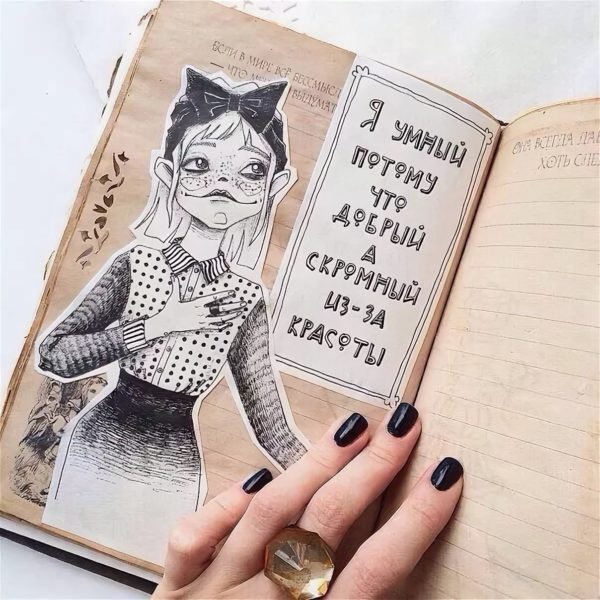 ЕСЛИ В МИРЕ ВСЁ
— ЧТО
ВЫДУМАТЬ
Я УМНЫЙ
ПОТОМУ
ЧТО
ДОБРЫЙ
А
СКРОМНЫЙ
ИЗ-ЗА
КРАСОТЫ
ОНА ВСЕГДА
ХОТЬ